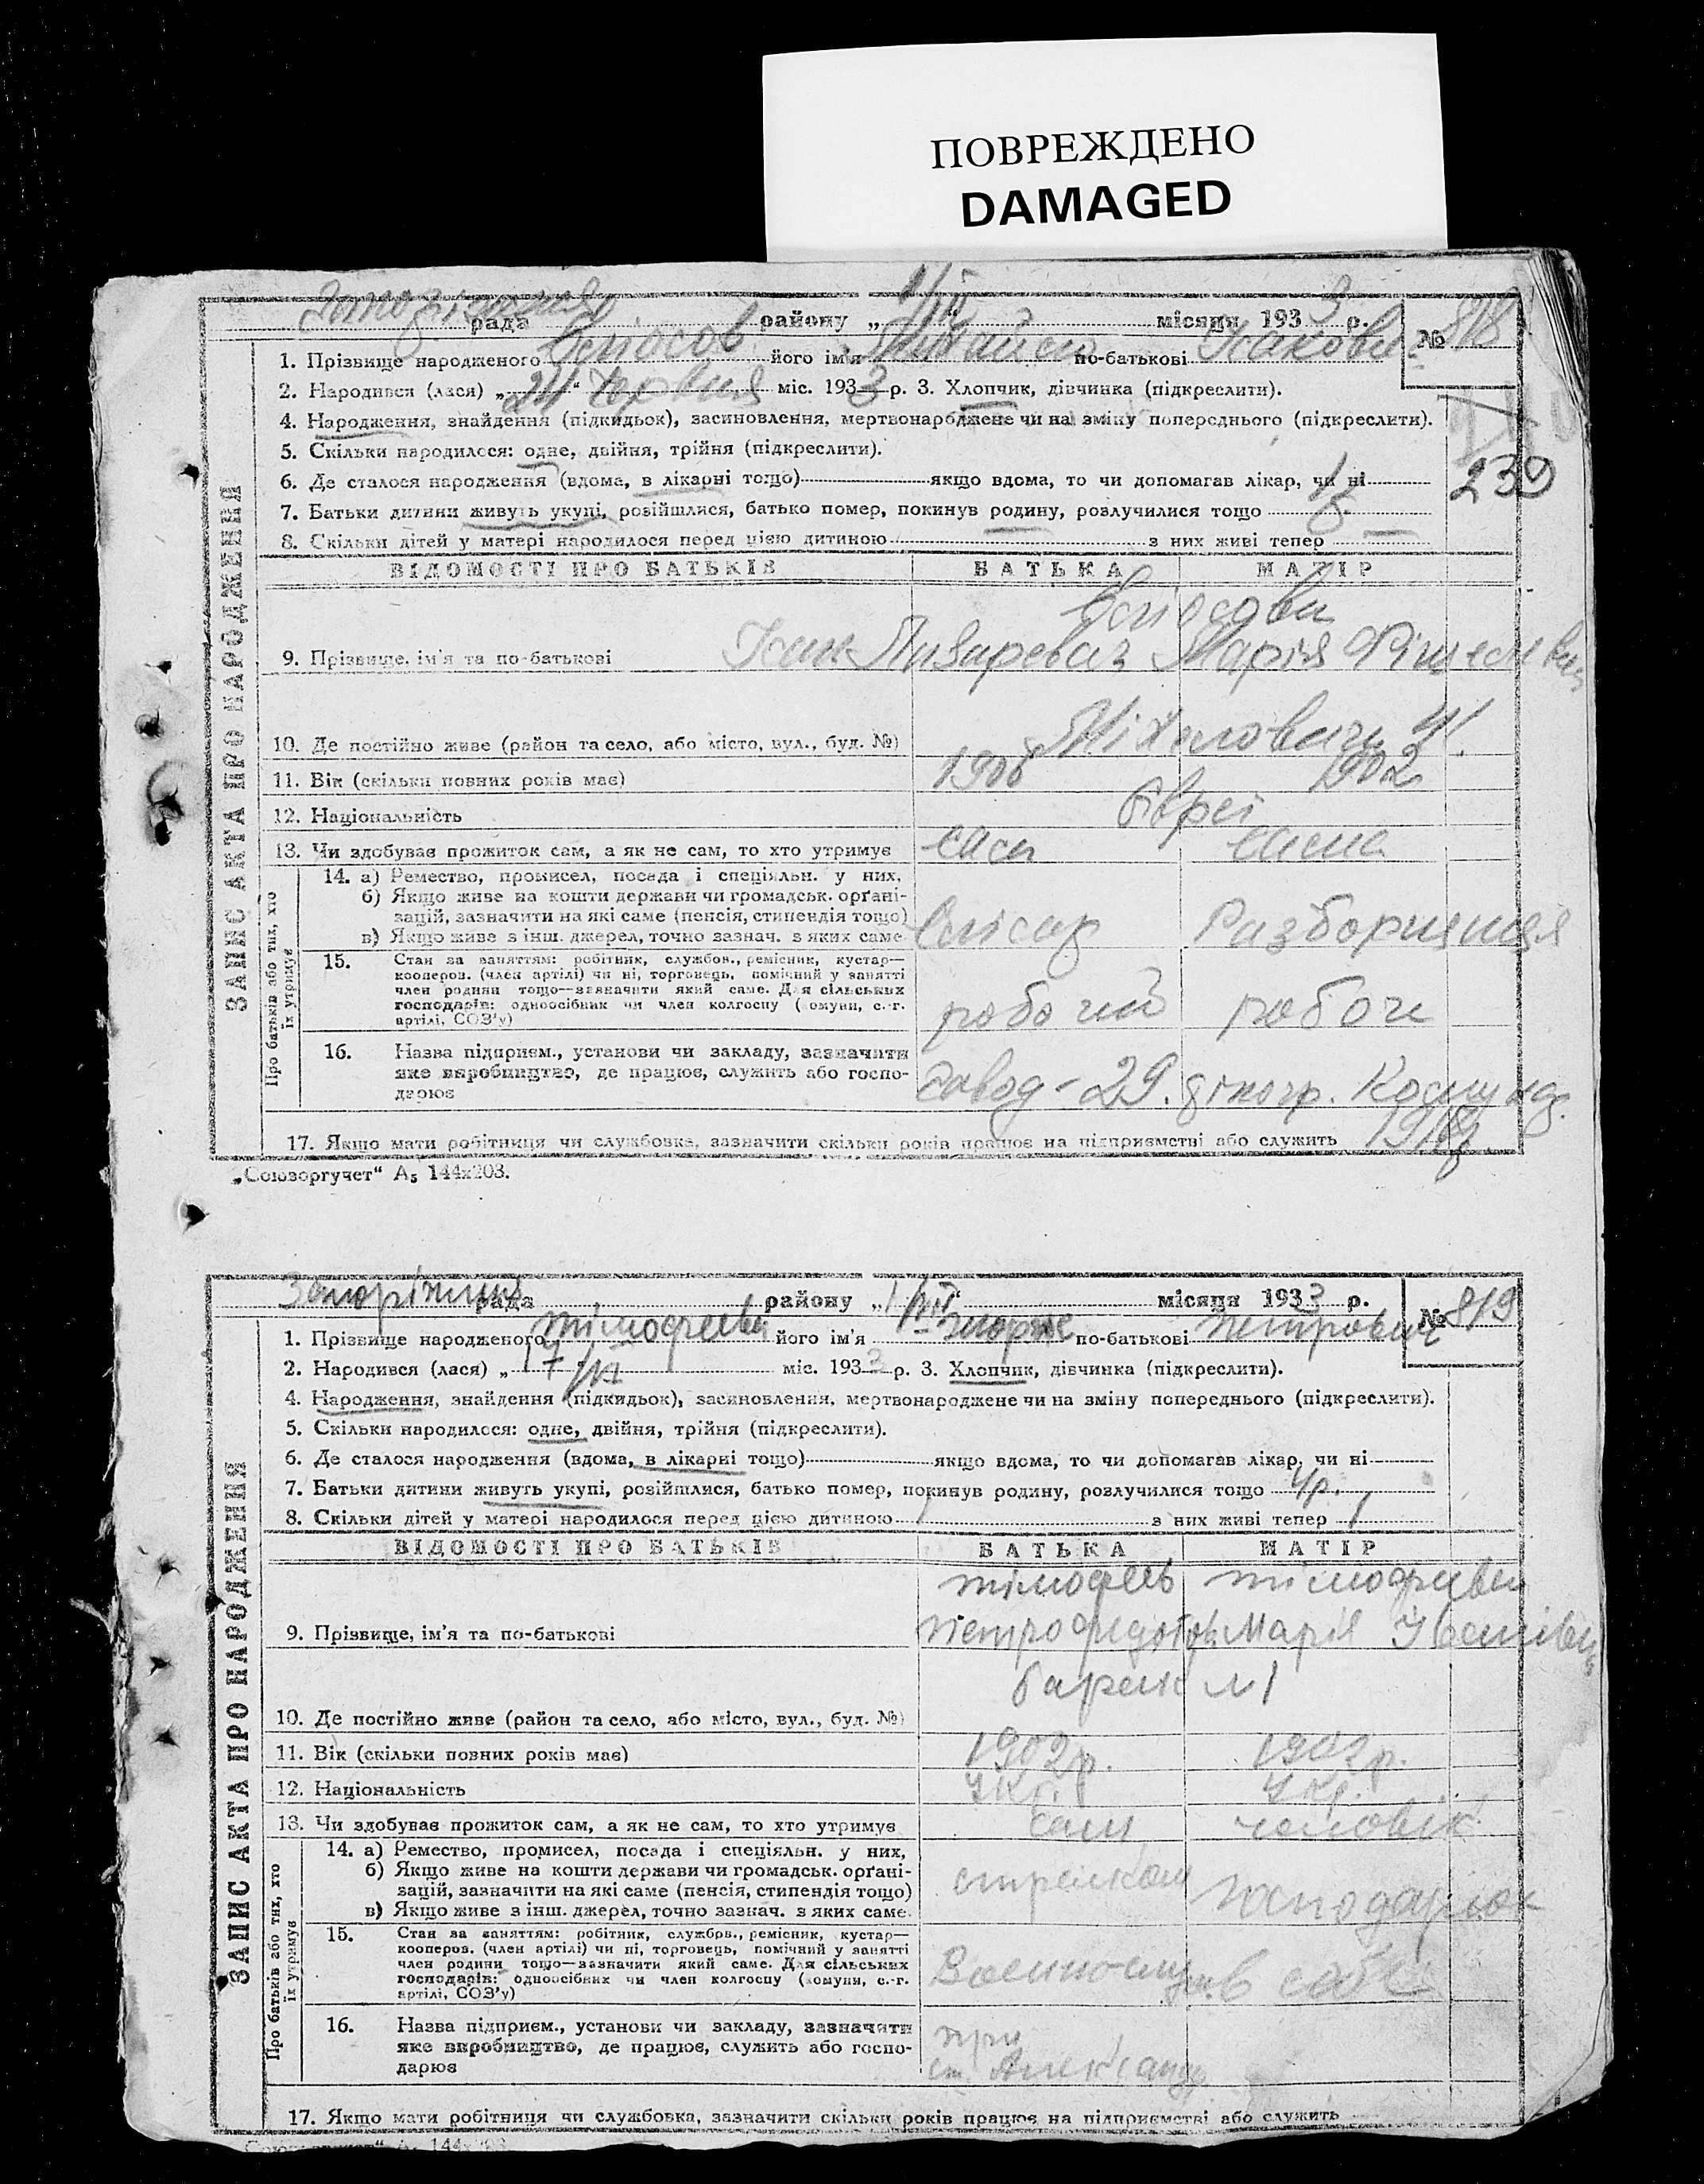 ПОВРЕЖДЕНО
DAMAGED
рада району „ 1/VII “ місяця 1933 р. № 818
1. Прізвище народженого його ім'я по-батькові
2. Народився (лася) „24“ червня міс. 1933 р. 3. Хлопчик, дівчинка (підкреслити).
4. Народження, знайдення (підкидьок), засиновлення, мертвонароджене чи на зміну попереднього (підкреслити).
5. Скільки народилося: одне, двійня, трійня (підкреслити).
6. Де сталося народження (вдома, в лікарні тощо) якщо вдома, то чи допомагав лікар, чи ні
239
7. Батьки дитини живуть укупі, розійшлися, батько помер, покинув родину, розлучилися тощо
8. Скільки дітей у матері народилося перед цією дитиною — з них живі тепер —
ВІДОМОСТІ ПРО БАТЬКІВ БАТЬКА МАТІР
9. Прізвище, ім'я та по-батькові Марія
10. Де постійно живе (район та село, або місто, вул., буд. №)
11. Вік (скільки повних років має) 1906 1902
12. Національність Євреї
13. Чи здобуває прожиток сам, а як не сам, то хто утримує сам сама
14. а) Ремество, промисел, посада і спеціяльн. у них,
б) Якщо живе на кошти держави чи громадськ. орґані-
зацій, зазначити на які саме (пенсія, стипендія тощо)
в) Якщо живе з інш. джерел, точно зазнач. з яких саме
слісар Разборщиця
15. Стан за заняттям: робітник, службов., ремісник, кустар—
кооперов. (член артілі) чи ні, торговець, помічний у занятті
член родини тощо—зазначити який саме. Для сільських
господарів: одноосібник чи член колгоспу (комуни, с.-г.
артілі, СОЗ'у)
робочий робоч
16. Назва підприєм., установи чи закладу, зазначити
яке виробництво, де працює, служить або госпо-
дарює
завод - 29.
17. Якщо мати робітниця чи службовка, зазначити скільки років працює на підприємстві або служить
ЗАПИС АКТА ПРО НАРОДЖЕННЯ
Про батьків або тих, хто
їх утримує
„Союзоргучет“ А5 144х203.
рада району „ 1/VII “ місяця 1933 р. № 819
1. Прізвище народженого його ім'я по-батькові Петрович
2. Народився (лася) „ міс. 1933 р. 3. Хлопчик, дівчинка (підкреслити).
4. Народження, знайдення (підкидьок), засиновлення, мертвонароджене чи на зміну попереднього (підкреслити).
5. Скільки народилося: одне, двійня, трійня (підкреслити).
6. Де сталося народження (вдома, в лікарні тощо) якщо вдома, то чи допомагав лікар, чи ні
7. Батьки дитини живуть укупі, розійшлися, батько помер, покинув родину, розлучилися тощо 4 р.
8. Скільки дітей у матері народилося перед цією дитиною 1 з них живі тепер 1
ВІДОМОСТІ ПРО БАТЬКІВ БАТЬКА МАТІР
9. Прізвище, ім'я та по-батькові Марія
барак №1
10. Де постійно живе (район та село, або місто, вул., буд. №)
11. Вік (скільки повних років має) 1902 р. 1902 р.
12. Національність Укр. Укр.
13. Чи здобуває прожиток сам, а як не сам, то хто утримує сам чоловік
14. а) Ремество, промисел, посада і спеціяльн. у них,
б) Якщо живе на кошти держави чи громадськ. орґані-
зацій, зазначити на які саме (пенсія, стипендія тощо)
в) Якщо живе з інш. джерел, точно зазнач. з яких саме
15. Стан за заняттям: робітник, службов., ремісник, кустар—
кооперов. (член артілі) чи ні, торговець, помічний у занятті
член родини тощо—зазначити який саме. Для сільських
господарів: одноосібник чи член колгоспу (комуни, с.-г.
артілі, СОЗ'у)
в себе
16. Назва підприєм., установи чи закладу, зазначити
яке виробництво, де працює, служить або госпо-
дарює
при
17. Якщо мати робітниця чи службовка, зазначити скільки років працює на підприємстві або служить
ЗАПИС АКТА ПРО НАРОДЖЕННЯ
Про батьків або тих, хто
їх утримує